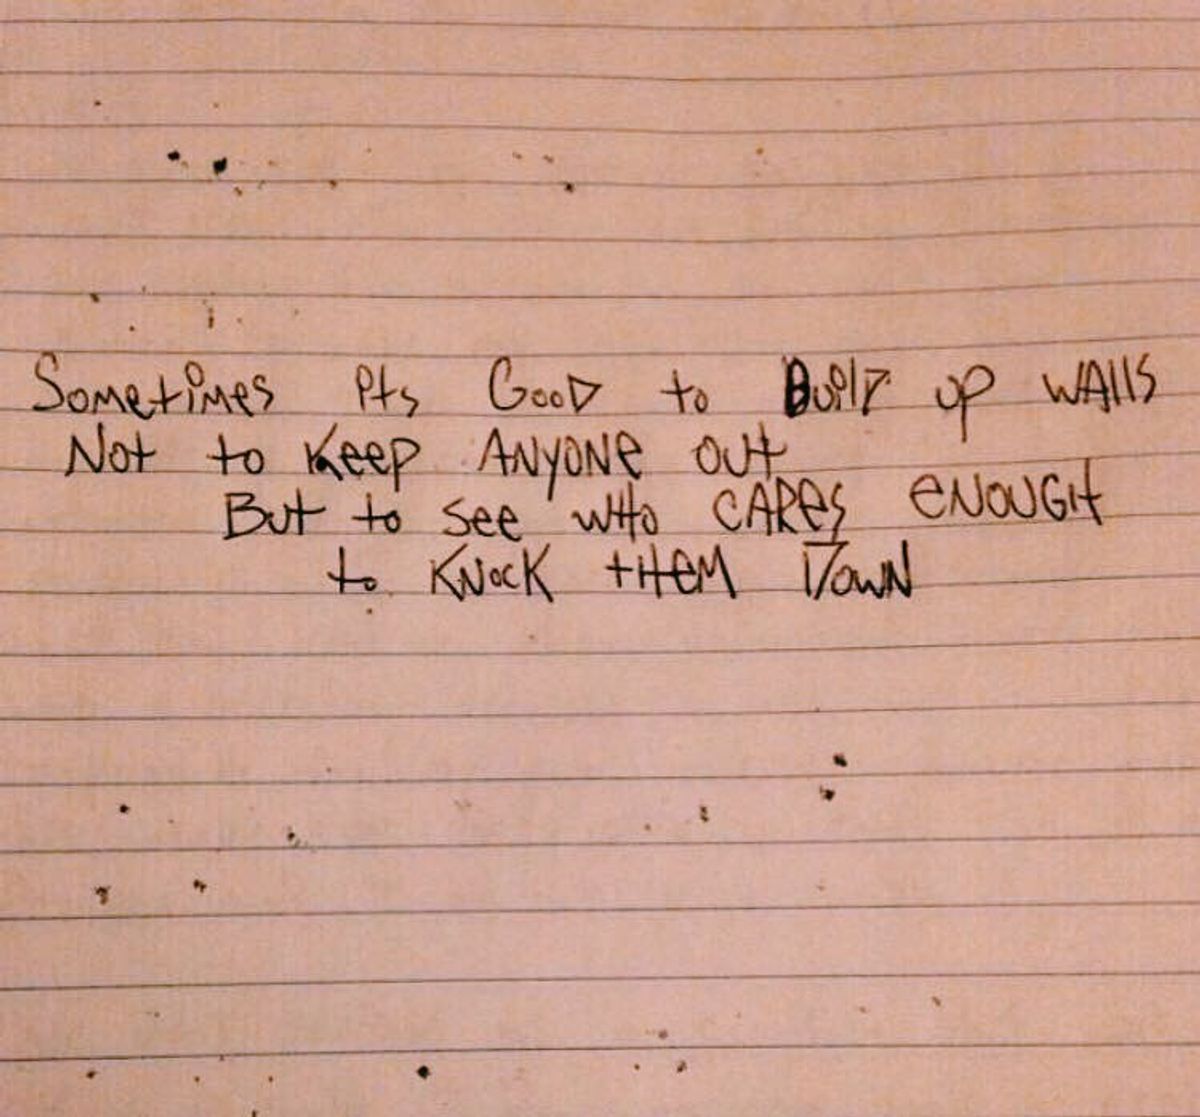 Sometimes its GooD to Build up WAllS
Not to Keep ANYONe out
But to see wHo CAReS eNOUGH
to KNocK tHeM DowN